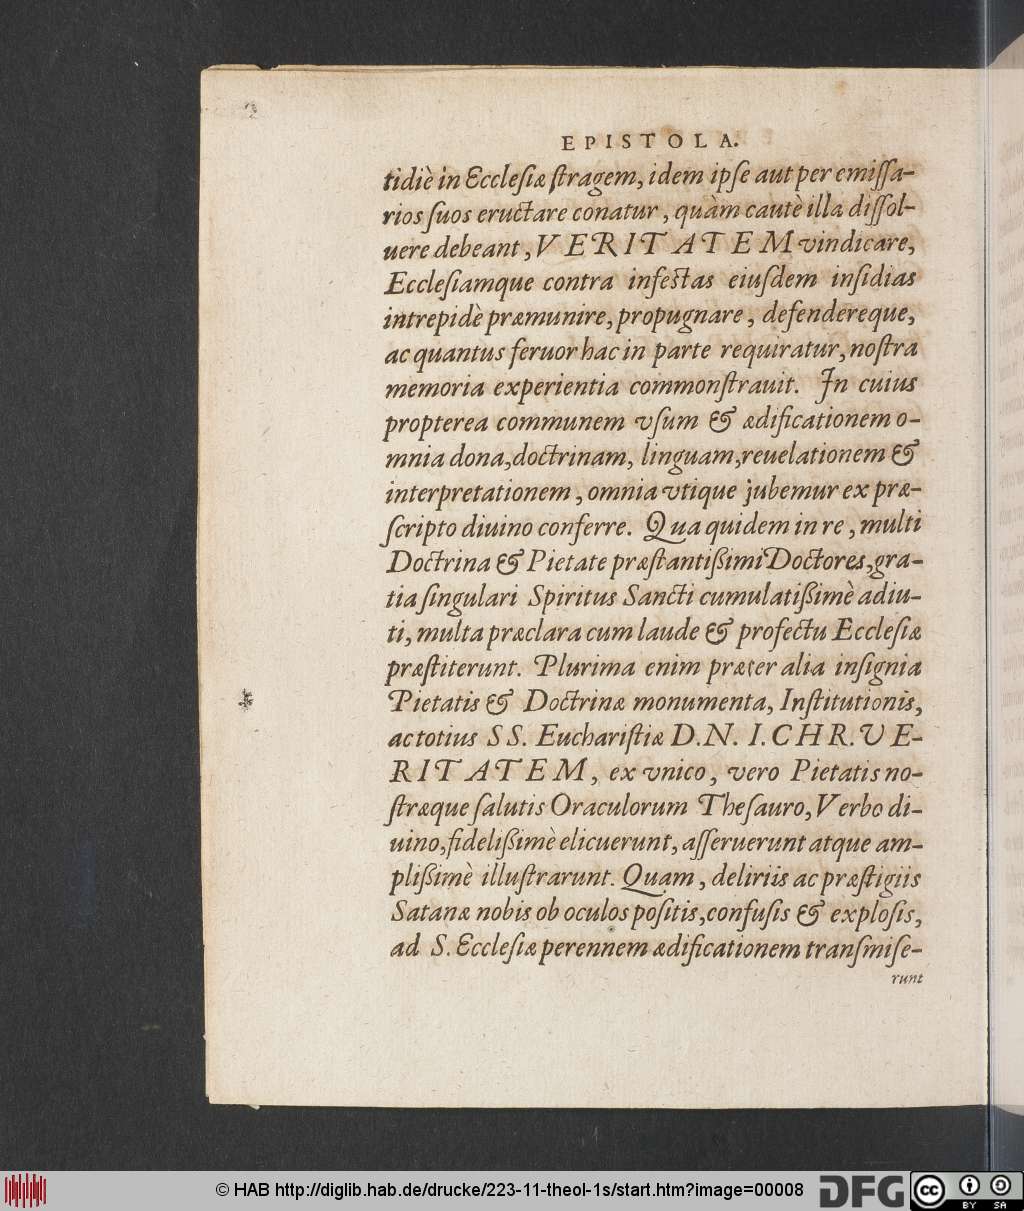 EPISTOLA.
tidiè in Ecclesiæ ſtragem, idem ipſe aut per emiſſa-
rios ſuos eructare conatur, quàm cautè illa diſſol-
uere debeant, VERITATEM vindicare,
Eccleſiamque contra infestas eiuſdem inſidias
intrepidè præmunire, propugnare, defendereque,
ac quantus feruor hac in parte requiratur, noſtra
memoria experientia commonſtrauit. In cuius
propterea communem vſum & ædificationem o-
mnia dona, doctrinam, linguam, reuelationem &
interpretationem, omnia vtique jubemur ex præ-
ſcripto diuino conferre. Qua quidem in re, multi
Doctrina & Pietate præſtantißimi Doctores, gra-
tia ſingulari Spiritus Sancti cumulatißimè adiu-
ti, multa præclara cum laude & profectu Eccleſiæ
præſtiterunt. Plurima enim præter alia inſignia
Pietatis & Doctrinæ monumenta, Inſtitutionis,
ac totius SS. Euchariſtiæ D.N. I. CHR. VE-
RITATEM, ex vnico, vero Pietatis no-
ſtræque ſalutis Oraculorum Theſauro, Verbo di-
uino, fidelißimè elicuerunt, aſſeruerunt atque am-
plißimè illuſtrarunt. Quam, deliriis ac præſtigiis
Satanæ nobis ob oculos poſitis, confuſis & exploſis,
ad S. Eccleſiæ perennem ædificationem tranſmiſe-
runt
© HAB http://diglib.hab.de/drucke/223-11-theol-1s/start.htm?image=00008
DFG
cc BY SA